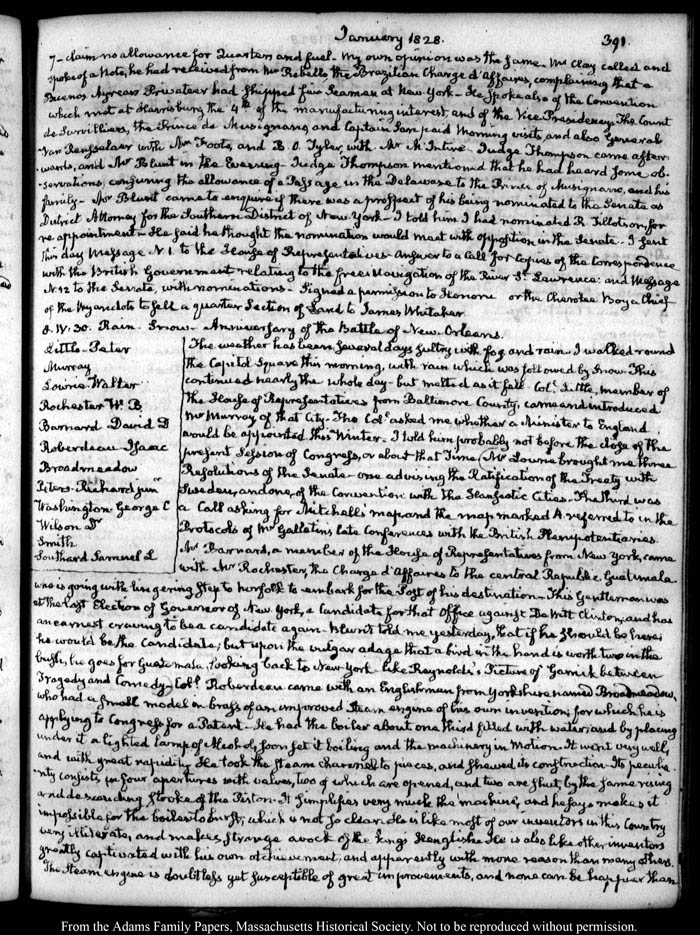 January 1828.
391.
7— claim no allowance for Quarters and fuel— My own opinion was the same— Mr Clay called and
spoke of a Note, he had received from Mr Rebello the Brazilian Chargé d'Affaires, complaining that a
Buenos Ayrean Privateer had shipped five Seamen at New-York— He spoke also of the Convention
which met at Harrisburg the 4th of the manufacturing interest, and of the Vice-Presidency. The Count
de Survilliers, the Prince de Musignano, and Captain Sari paid morning visits, and also General
Van Rensselaer with Mr Foote, and B. O. Tyler, with Mr McIntire. Judge Thompson came after
wards, and Mr Blunt in the Evening— Judge Thompson mentioned that he had heard some ob-
servations, censuring the allowance of a Passage in the Delaware to the Prince of Musignano, and his
family— Mr Blunt came to enquire if there was a prospect of his being nominated to the Senate as
District Attorney for the Southern District of New-York— I told him I had nominated R. Tillotson, for
re appointment— He said he thought the nomination would meet with opposition in the Senate— I sent
this day Message N. 1. to the House of Representatives— Answer to a Call for Copies of the Correspondence
with the British Government relating to the free Navigation of the River St. Lawrence: and Message
N. 12 to the Senate, with nominations— Signed a permission to Honore or the Cherokee Boy a Chief
of the Wyandots to sell a quarter Section of Land to James Whitaker.
8. IV:30. Rain— Snow— Anniversary of the Battle of New-Orleans.
Little. Peter
Murray
Lowrie Walter
Rochester W. B.
Barnard David D
Roberdeau Isaac
Broadmeadow
Peters. Richard junr
Washington George C
Wilson Dr
Smith
Southard Samuel L
The weather has been several days sultry with fog and rain. I walked round
the Capitol Square this morning, with rain which was followed by Snow. This
continued nearly the whole day— but melted as it fell. Coll. Little, member of
the House of Representatives from Baltimore County, came and introduced
Mr Murray of that City— The Coll. asked me whether a Minister to England
would be appointed this Winter— I told him probably not before the close of the
present Session of Congress, or about that Time. Mr Lowrie brought me three
Resolutions of the Senate— one advising the Ratification of the Treaty with
Sweden, and one, of the Convention with the Hanseatic Cities— The third was
a Call asking for Mitchell's map and the map marked A. referred to in the
Protocols of Mr Gallatin's late Conferences with the British Plenipotentiaries.
Mr Barnard, a member of the House of Representatives from New York, came
with Mr Rochester, the Chargé d'Affaires to the central Republic Guatemala
who is going with lingering step to Norfolk to embark for the Post of his destination— This Gentleman was
at the last Election of Governor of New York, a Candidate for that Office against De Witt Clinton, and has
an earnest craving to be a candidate again— Blunt told me yesterday, that if he should be here;
he would be the Candidate; but upon the vulgar adage that a bird in the hand is worth two in the
bush, he goes for Guatemala. looking back to New-York like Reynolds's Picture of Garrick between
Tragedy and Comedy. Coll. Roberdeau came with an Englishman from Yorkshire named Broadmeadow,
who had a small model in brass of an improved Steam engine of his own invention; for which he is
applying to Congress for a Patent— He had the boiler about one third filled with water, and by placing
under it a lighted lamp of Alcohol, soon set it boiling and the machinery in Motion. It went very well,
and with great rapidity. He took the steam channel to pieces, and shewed its construction. Its peculia-
rity consists, in four apertures with valves, two of which are opened, and two are shut, by the same rising
and descending stroke of the Piston— It simplifies very much the machine, and he says makes it
impossible for the boiler to burst; which is not so clear. He is like most of our inventors in this Country
very illiterate, and makes strange work of the kings Henglish. He is also like other inventors
greatly captivated with his own atchievement, and apparently with more reason than many others.
The steam engine is doubtless yet susceptible of great improvements, and none can be happier than
From the Adams Family Papers, Massachusetts Historical Society. Not to be reproduced without permission.